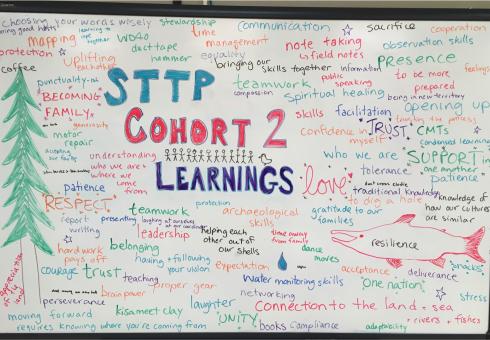 choosing your words wisely
stewardship
communication
sacrifice
cooperation
mapping
learning to
cope
together
WD40
time
management
note taking
observation skills
protection
ducttape
hammer
equality
↳ field notes
uplifting
eachother
bringing our
skills together
information
presence
feelings
coffee
teamwork
public
speaking
to be more
prepared
punctuality
compassion
spiritual healing
being in new territory
BECOMING
FAMILY
STTP
opening up
generosity
skills
facilitation
trusting the process
motor
repair
COHORT 2
confidence in
myself
TRUST
CMTs
condensed learning
understanding
who we are
where we
come
from
LEARNINGS
who we are
SUPPORT in
one another
patience
tolerance
love
patience
traditional knowledge
RESPECT
protection
to dig a hole
knowledge of
how our cultures
are similar
teamwork
archaeological
skills
gratitude to our
families
report
writing
presenting
laughing at ourselves
leadership
helping each
other out of
our shells
time away
from family
resilience
hard work
pays off
belonging
dance
moves
snacks
having + following
your vision
expectation
acceptance
deliverance
courage
trust
teaching
water monitoring skills
"one nation"
brain power
proper gear
networking
stress
perseverance
laughter
connection to the land + sea
moving forward
kisameet clay
"UNITY"
rivers + fishes
requires knowing where you're coming from
books
compliance
adaptability